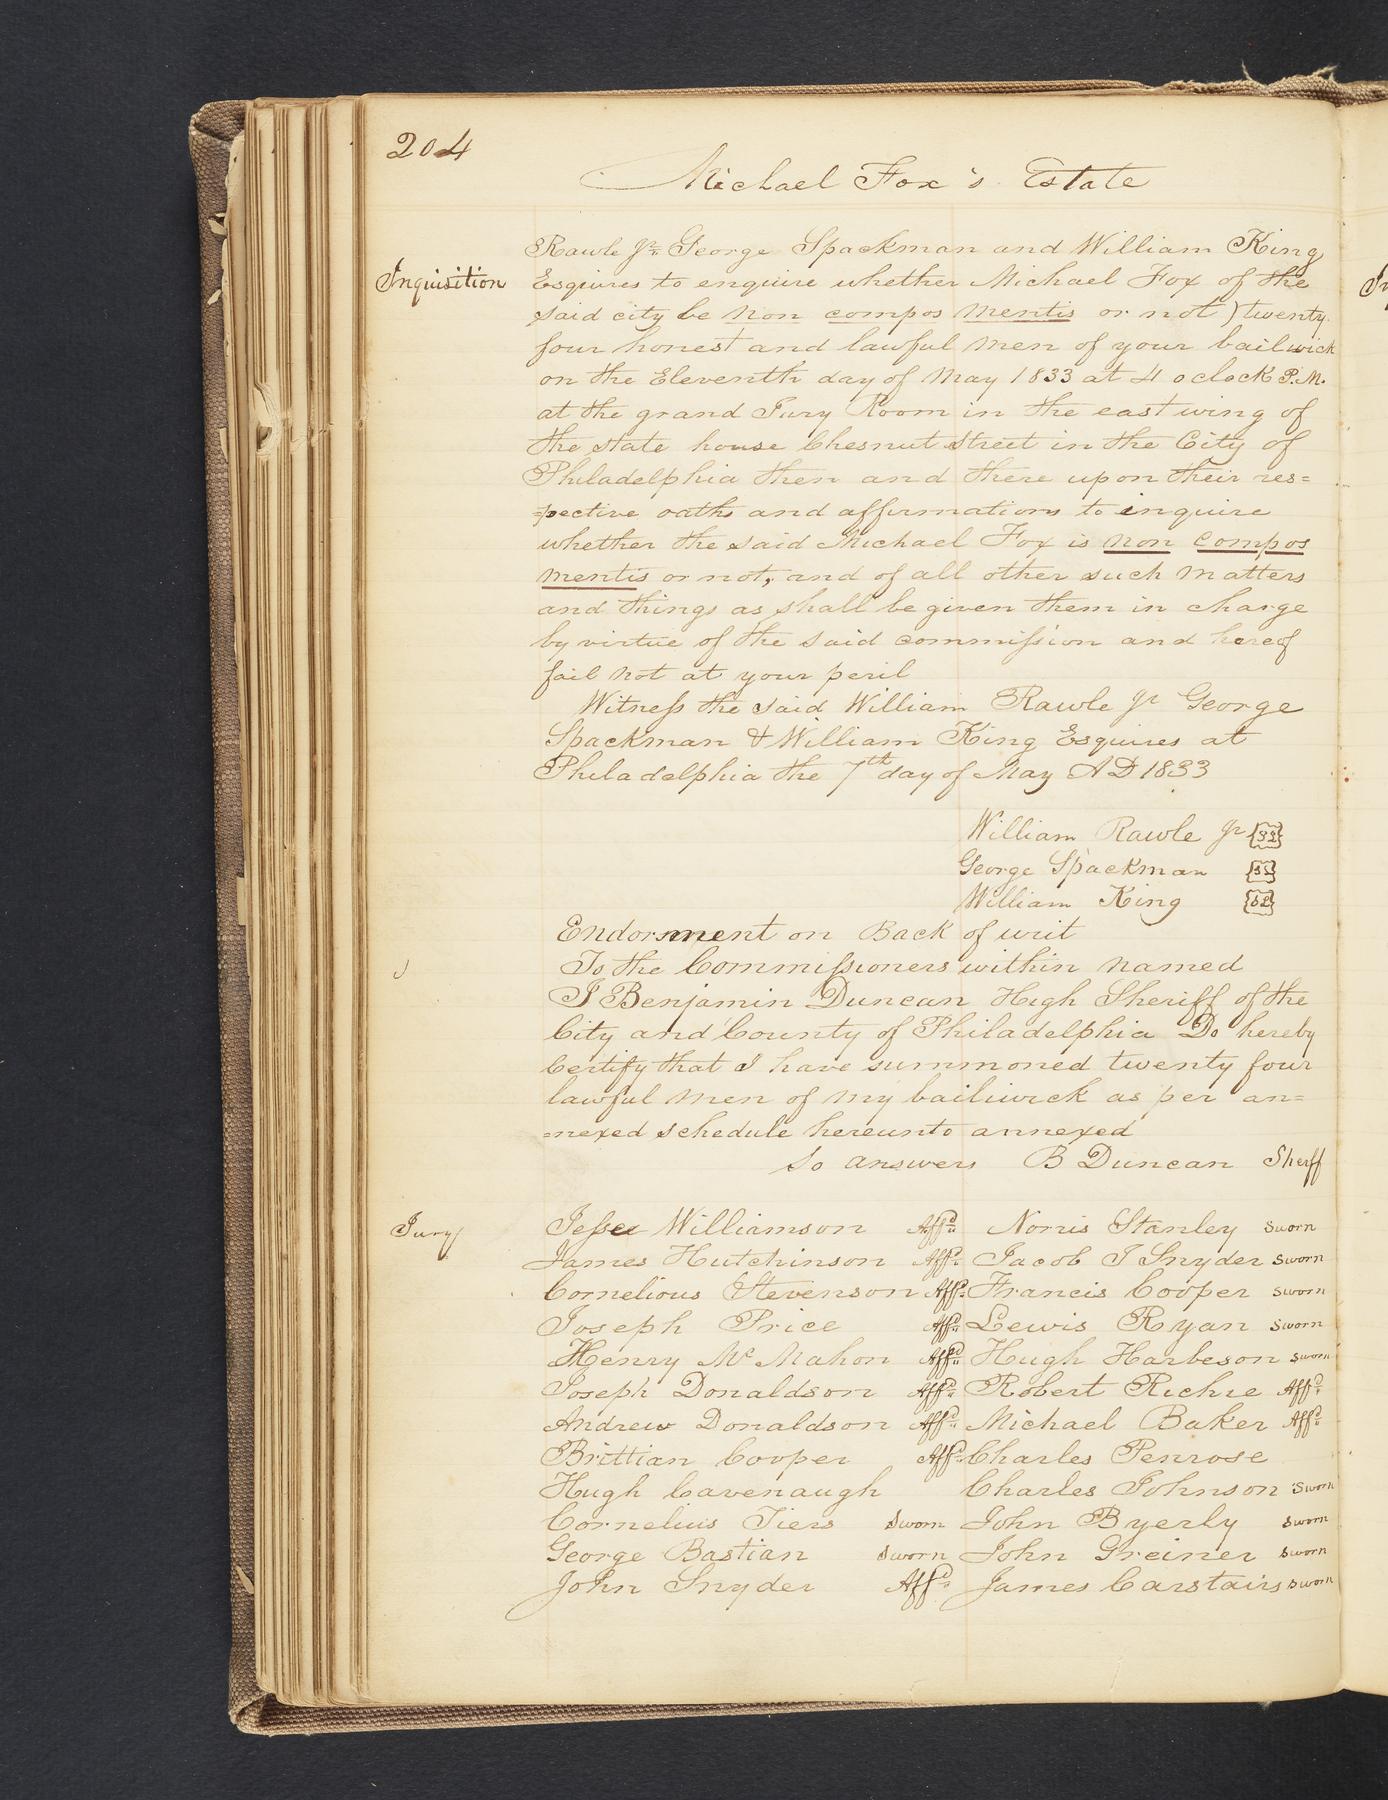 204
Michael Fox's Estate
Rawle Jr. George Spackman and William King
Inquisition
Esquires to enquire whether Michael Fox of the
said city be non compos mentis or not) twenty
four honest and lawful men of your bailwick
on the Eleventh day of May 1833 at 4 oclock P.M.
at the grand Jury Room in the east wing of
the state house Chesnut street in the City of
Philadelphia then and there upon their res=
=pective oaths and affirmations to inquire
whether the said Michael Fox is non compos
mentis or not, and of all other such matters
and things as shall be given them in charge
by virtue of the said commission and hereof
fail not at your peril
Witness the said William Rawle Jr George
Spackman & William King Esquires at
Philadelphia the 7th day of May AD 1833
William Rawle Jr
George Spackman
William King
Endorsment on Back of writ
To the Commissioners within named
I Benjamin Duncan High Sheriff of the
City and County of Philadelphia Do hereby
Certify that I have summoned twenty four
lawful men of my bailiwick as per an=
=nexed schedule hereunto annexed
So answers B Duncan Sheriff
Jury
Jesse Williamson Affd Norris Stanley sworn
James Hutchinson Affd Jacob J Snyder sworn
Cornelious Stevenson Affd Francis Cooper sworn
Joseph Price Affd Lewis Ryan sworn
Henry Mc Mahon Affd Hugh Harbeson sworn
Joseph Donaldson Affd Robert Richie Affd
Andrew Donaldson Affd Michael Baker Affd
Brittian Cooper Affd Charles Penrose
Hugh Cavenaugh Charles Johnson Sworn
Cornelius Tiers Sworn John Byerly sworn
George Bastian Sworn John Greiner sworn
John Snyder Affd James Carstairs sworn